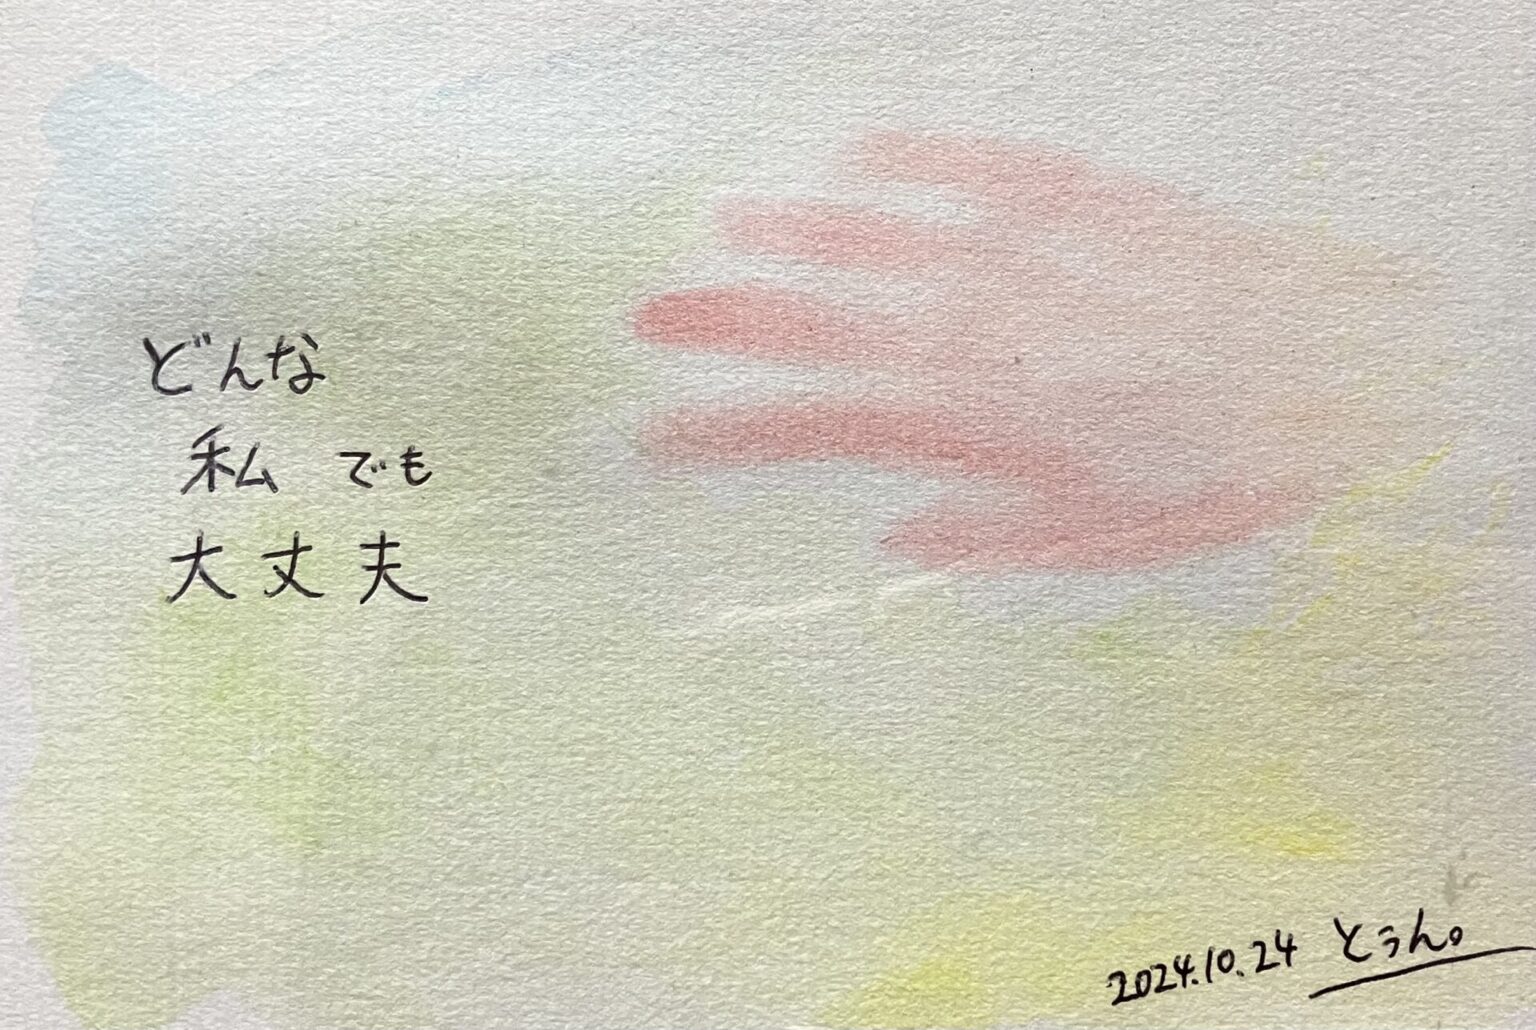 どんな
私 でも
大丈夫
2024.10.24 とぅん。